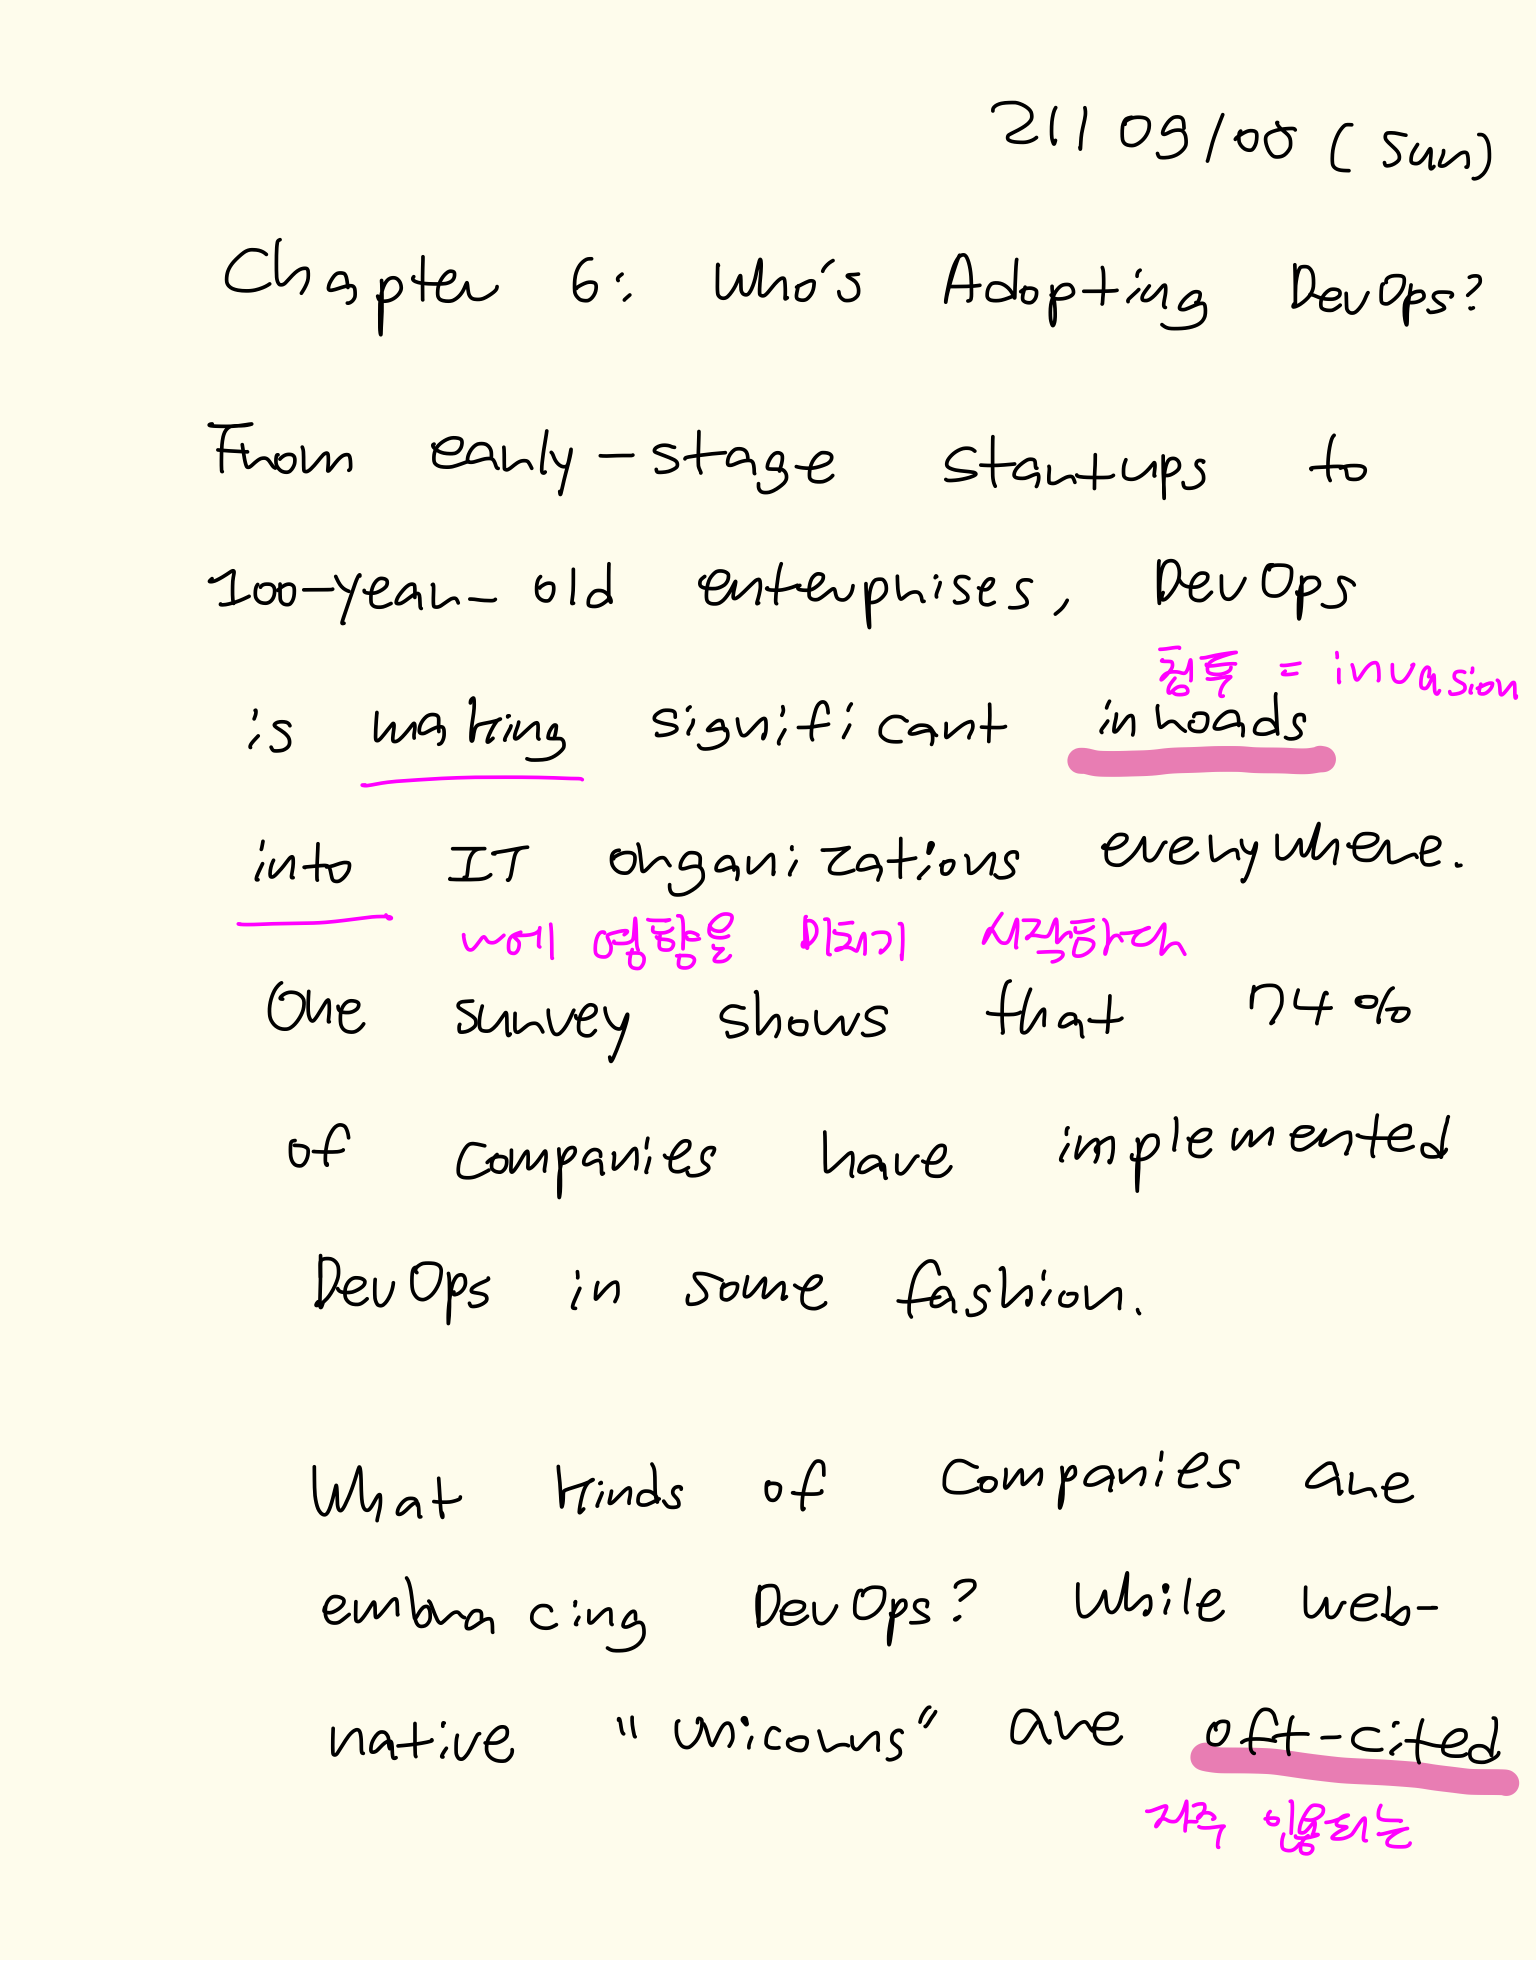 211 09/05 (Sun)
Chapter 6: Who's Adopting DevOps?
From early-stage startups to
100-year-old enterprises, DevOps
침투 = invasion
is making significant inroads
into IT organizations everywhere.
~에 영향을 미치기 시작하다
One survey shows that 74%
of companies have implemented
DevOps in some fashion.
What kinds of companies are
embracing DevOps? While web-
native "unicorns" are oft-cited
자주 인용되는